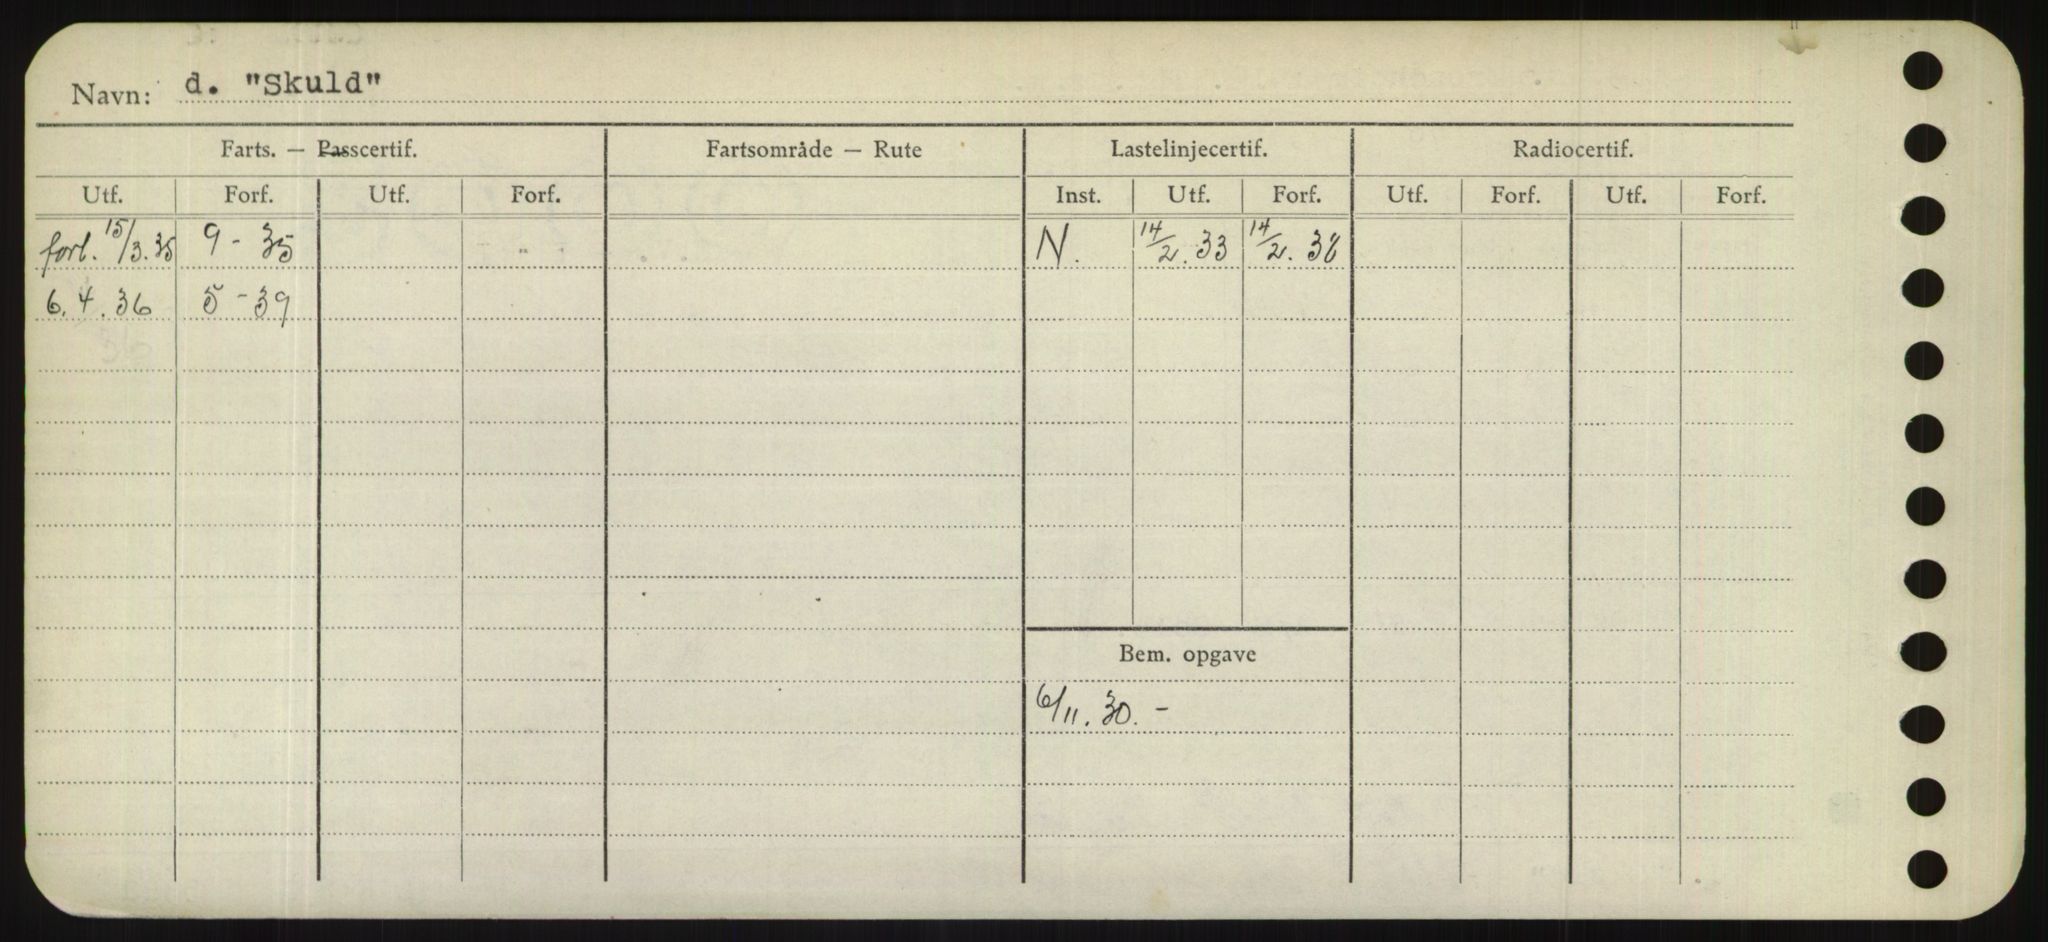 Navn: d. "Skuld"
Farts. — Passcertif. Fartsområde — Rute Lastelinjecertif. Radiocertif.
Utf. Forf. Utf. Forf. Inst. Utf. Forf. Utf. Forf. Utf. Forf.
forl. 15/3.35 9 - 35 N. 14/2.33 14/2.38
6.4.36 5 - 39
Bem. opgave
6/11.30. -